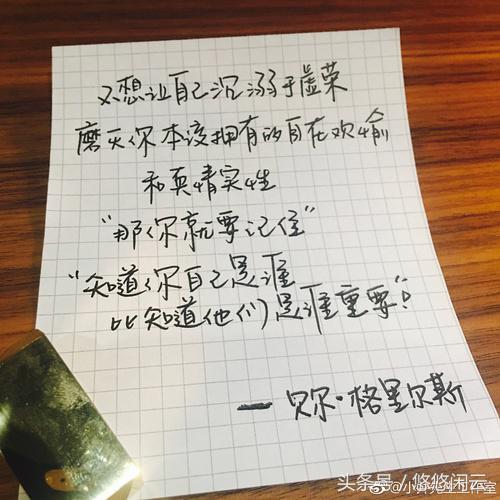 不想让自己沉溺于虚荣
磨灭你本该拥有的自在欢愉
和真情实性
“那你就要记住”
“知道你自己是谁
比知道他们是谁重要”!
—贝尔·格里尔斯
头条号／悠悠闲云